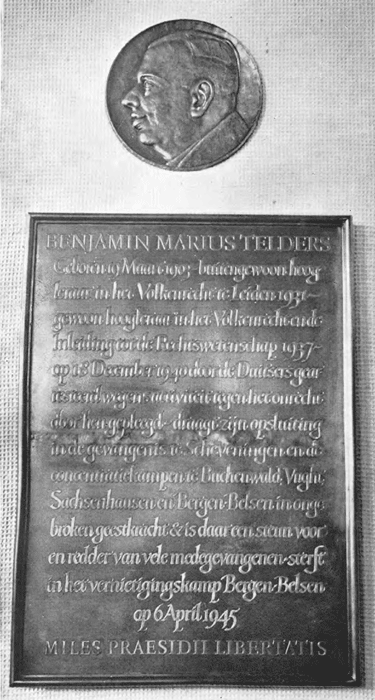 BENJAMIN MARIUS TELDERS
Geboren 19 Maart 1903 – buitengewoon hoog
leraar in het Volkenrecht te Leiden 1931 –
gewoon hoogleraar in het Volkenrecht en de
Inleiding tot de Rechtswetenschap 1937 –
op 18 December 1940 door de Duitsers gear
resteerd wegens activiteit tegen het onrecht
door hen gepleegd – draagt zijn opsluiting
in de gevangenis te Scheveningen en de
concentratiekampen te Buchenwald, Vught,
Sachsenhausen en Bergen-Belsen in onge
broken geestkracht & is daar een steun voor
en redder van vele medegevangenen – sterft
in het vernietigingskamp Bergen-Belsen
op 6 April 1945
MILES PRAESIDII LIBERTATIS